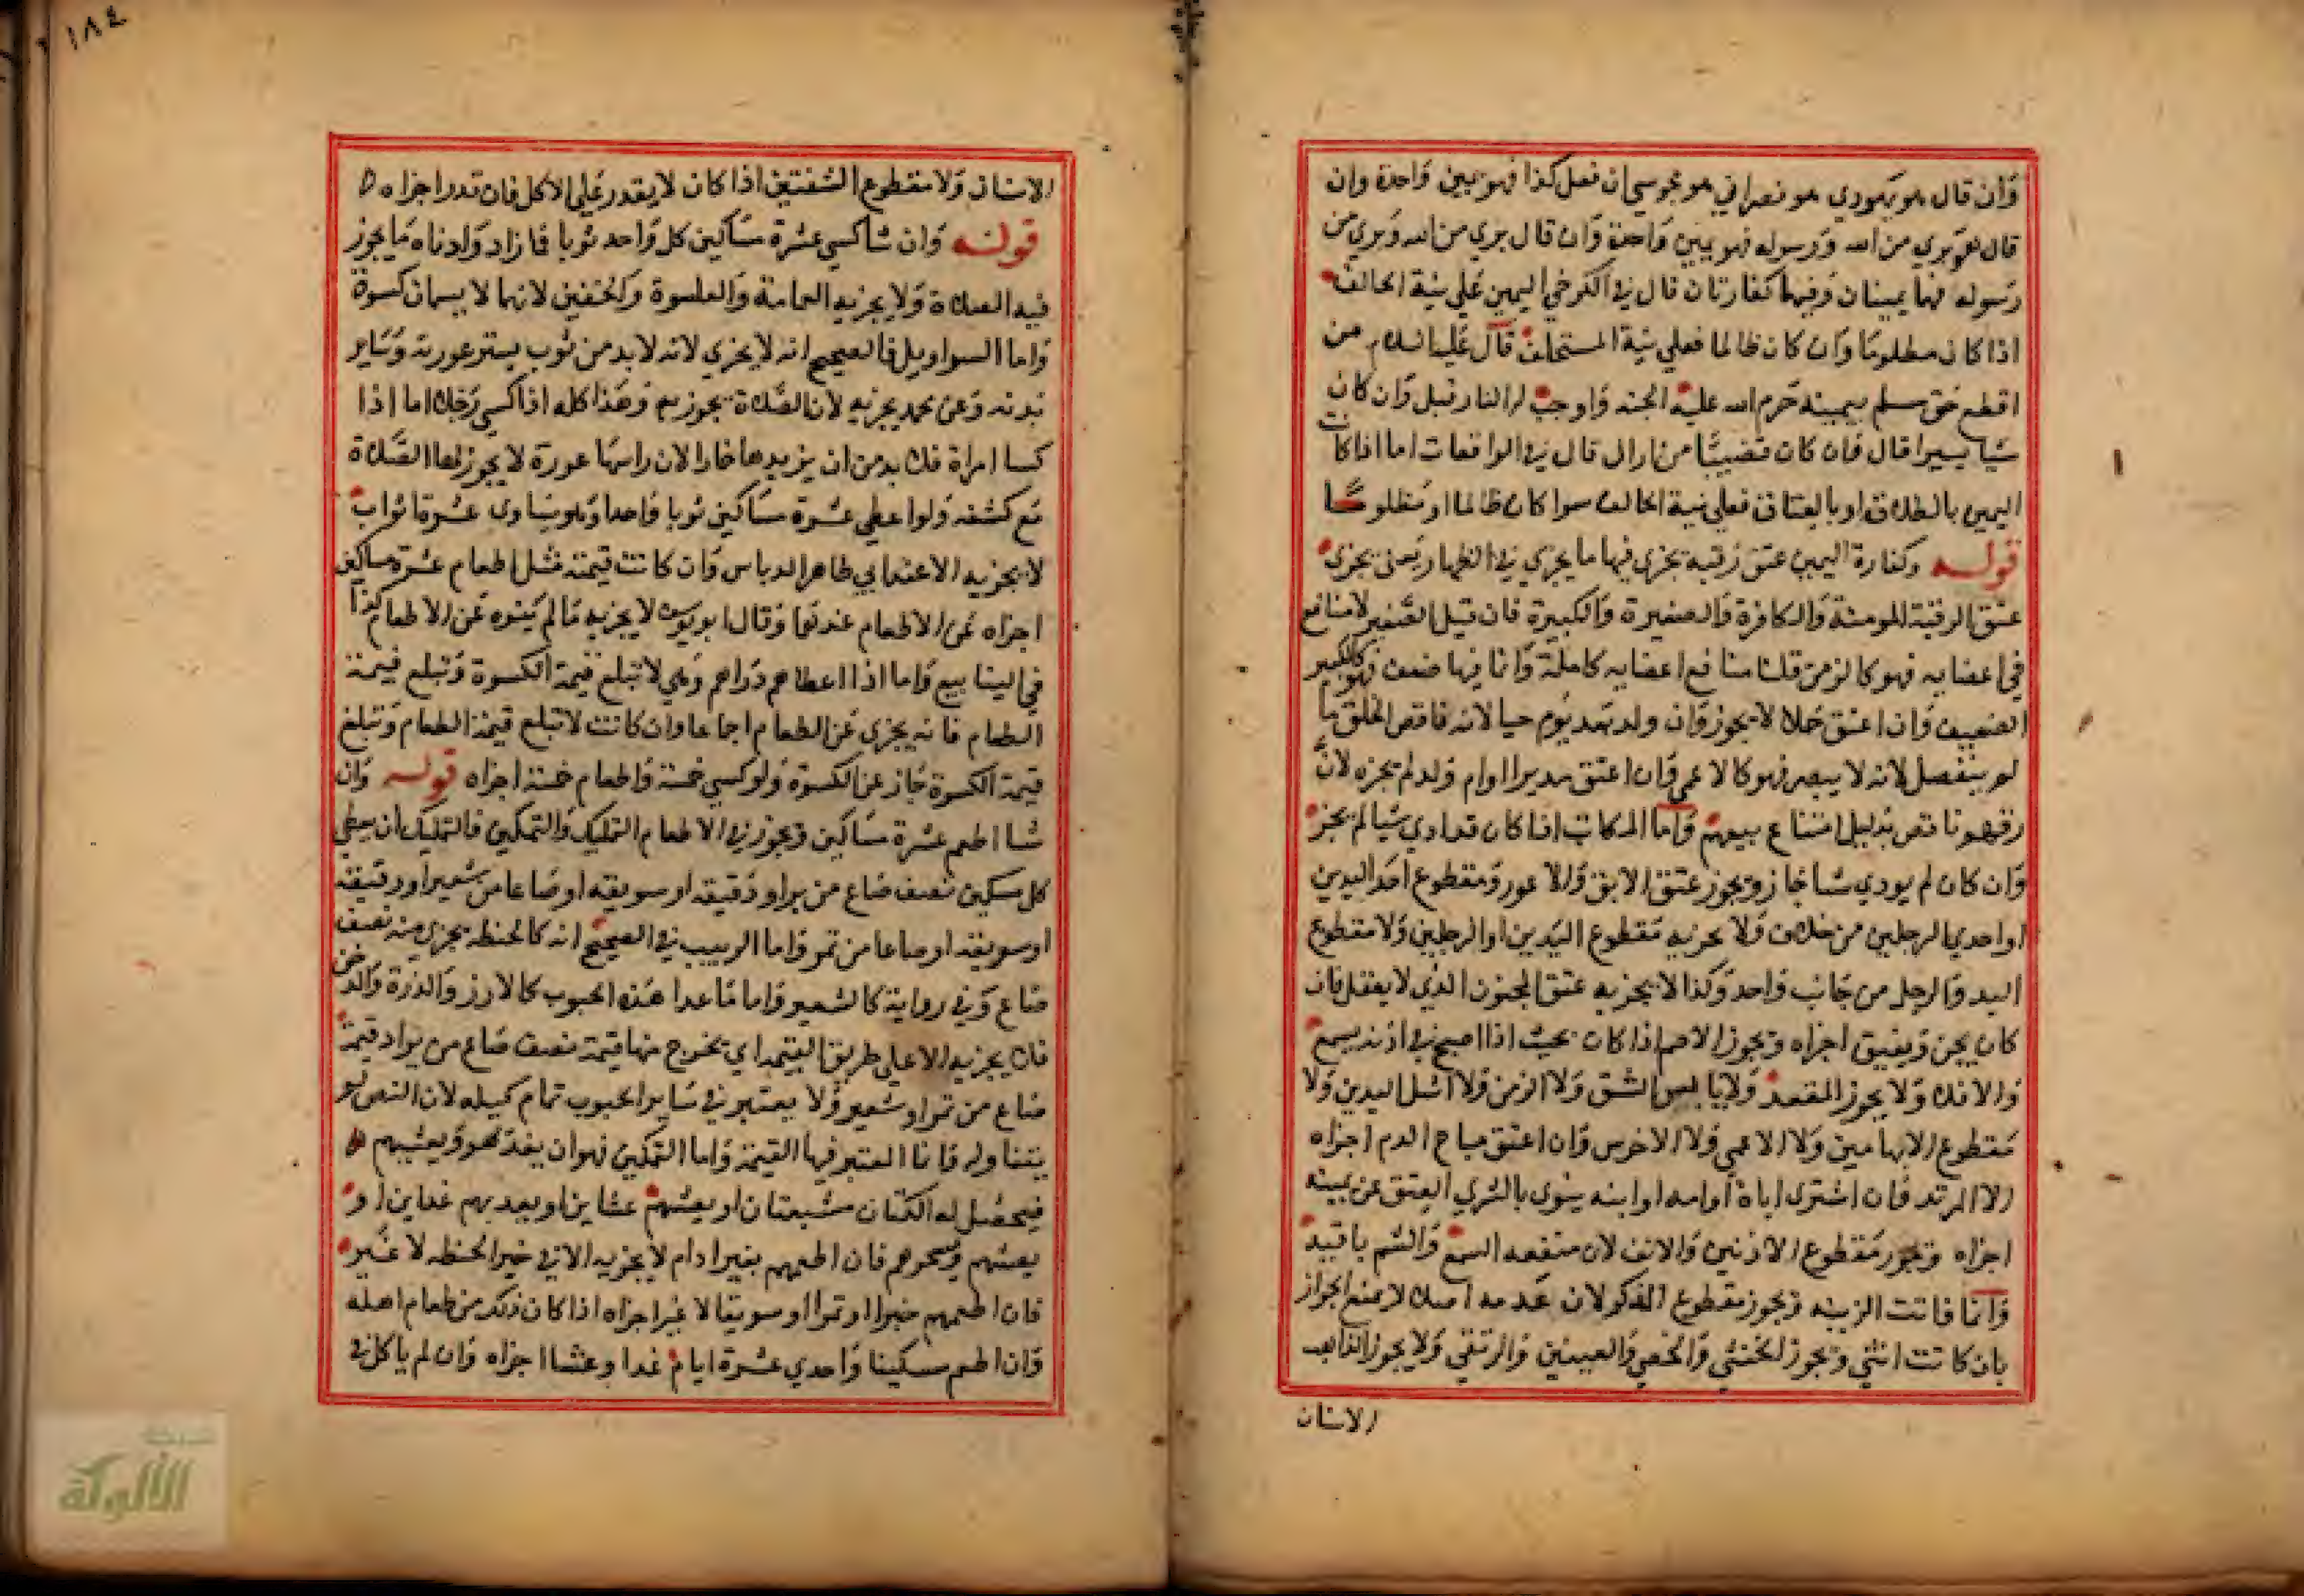 وان قال هو يهودي هو نصراني هو مجوسي ان فعل كذا فهو يمين واحدة وان
قال هو بري من الله ورسوله فهو يمين واحدة وان قال بري من الله وبري من
رسوله فهما يمينان وفيهما كفارتان قال في الكرخي اليمين علي نية الحالف
اذا كان مظلوما وان كان ظالما فعلي نية المستحلف قال عليه السلام من
اقطع حق مسلم بيمينه حرم الله عليه الجنه واوجب له النار قيل وان كان
شيا يسيرا قال وان كان قضيبا من اراك قال في الواقعات اما اذا كانت
اليمين بالطلاق او بالعتاق فعلي نية الحالف سوا كان ظالما او مظلوما
قوله وكفارة اليمين عتق رقبة يجزي فيها ما يجزي في الظهار يعني يجزي
عتق الرقبة المومنة والكافرة والصغيرة والكبيرة فان قيل الصغير لا منافع
في اعضايه فهو كالزمن قلنا منافع اعضايه كاملة وانما فيها ضعف فهو كالكبير
الضعيف وان اعتق حملا لا يجوز وان ولد بعد يوم حيا لانه ناقص الخلق ما
لم ينفصل لانه لا يبصر فهو كالاعمي وان اعتق مدبرا او ام ولد لم يجزه لان
رقهم ناقص بدليل امتناع بيعهم واما المكاتب اذا كان قد ادي شيا لم يجز
وان كان لم يودي شيا جاز ويجوز عتق الابق والاعور ومقطوع احد اليدين
او احدي الرجلين من خلاف ولا يجزيه مقطوع اليدين او الرجلين ولا مقطوع
اليد والرجل من جانب واحد وكذا لا يجزيه عتق المجنون الذي لا يعقل فان
كان يجن ويفيق اجزاه ويجوز الاصم اذا كان بحيث اذا اصيح في اذنه يسمع
والا فلا ولا يجوز المقعد ولا يابس الشق ولا الزمن ولا اشل اليدين ولا
مقطوع الابهامين ولا الاعمي ولا الاخرس وان اعتق مباح الدم اجزاه
الا المرتد فان اشتري اباه او امه او ابنه ينوي بالشري العتق عن يمينه
اجزاه ويجوز مقطوع الاذنين والانف لان منفعه السمع والشم باقية
وانما فاتت الزينه ويجوز مقطوع الذكر لان عدمه اصلا لا يمنع الجواز
بان كانت انثي ويجوز الخنثي والخصي والعينين والرتقي ولا يجوز الذاهب
الاسنان
١٨٤
الاسنان ولا مقطوع الشفتين اذا كان لا يقدر علي الاكل فان قدر اجزاه
قوله وان شا كسي عشرة مساكين كل واحد ثوبا فما زاد وادناه ما يجوز
فيه الصلاة ولا يجزيه العمامة والقلنسوة والخفين لانهما لا يسمان كسوة
واما السراويل فالصحيح انه لا يجزي لانه لا بد من ثوب يستر عورته وساير
بدنه وعن محمد يجزيه لان الصلاة تجوز به وهذا كله اذا كسي رجلا اما اذا
كسا امراة فلا بد من ان يزيدها خمارا لان راسها عورة لا يجوز لها الصلاة
مع كشفه ولو اعطي عشرة مساكين ثوبا واحدا وهو يساوي عشرة اثواب
لا يجزيه الا عند ابي طاهر الدباس وان كانت قيمته مثل اطعام عشرة مساكين
اجزاه عن الاطعام عندهما وقال ابو يوسف لا يجزيه ما لم ينوه عن الاطعام كذا
في الينابيع واما اذا اعطاهم دراهم وهي لا تبلغ قيمة الكسوة وتبلغ قيمة
الطعام فانه يجزي عن الطعام اجماعا وان كانت لا تبلع قيمة الطعام وتبلغ
قيمة الكسوة جاز عن الكسوة ولو كسي خمسة واطعام خمسة اجزاه قوله وان
شا اطعم عشرة مساكين ويجوز في الاطعام التمليك والتمكين فالتمليك ان يعطي
كل مسكين نصف صاع من بر او دقيقه او سويقه او صاعا من شعير او دقيقه
او سويقه او صاعا من تمر واما الزبيب في الصحيح انه كالحنطه يجزي منه نصف
صاع وفي رواية كالشعير واما ما عدا هذه الحبوب كالارز والذرة والدخن
فلا يجزيه الا علي طريق القيمة اي تخرج منها قيمة نصف صاع من بر او قيمة
صاع من تمر او شعير ولا يعتبر في ساير الحبوب تمام كيله لان النص لم
يتناوله وانما المعتبر فيها القيمة واما التمكين فهو ان يغديهم ويعشيهم
فيحصل له اكلتان مشبعتان او يعشيهم عشاين او يغديهم غداين او
يعشيهم ويسحرهم فان اطعمهم بغير ادام لا يجزيه الا في خبز الحنطه لا غير
فان اطعمهم خبزا او تمرا او سويقا لا غير اجزاه اذا كان ذلك من طعام اهله
وان اطعم مسكينا واحدي عشرة ايام غدا وعشا اجزاه وان لم ياكل في
الألوكة